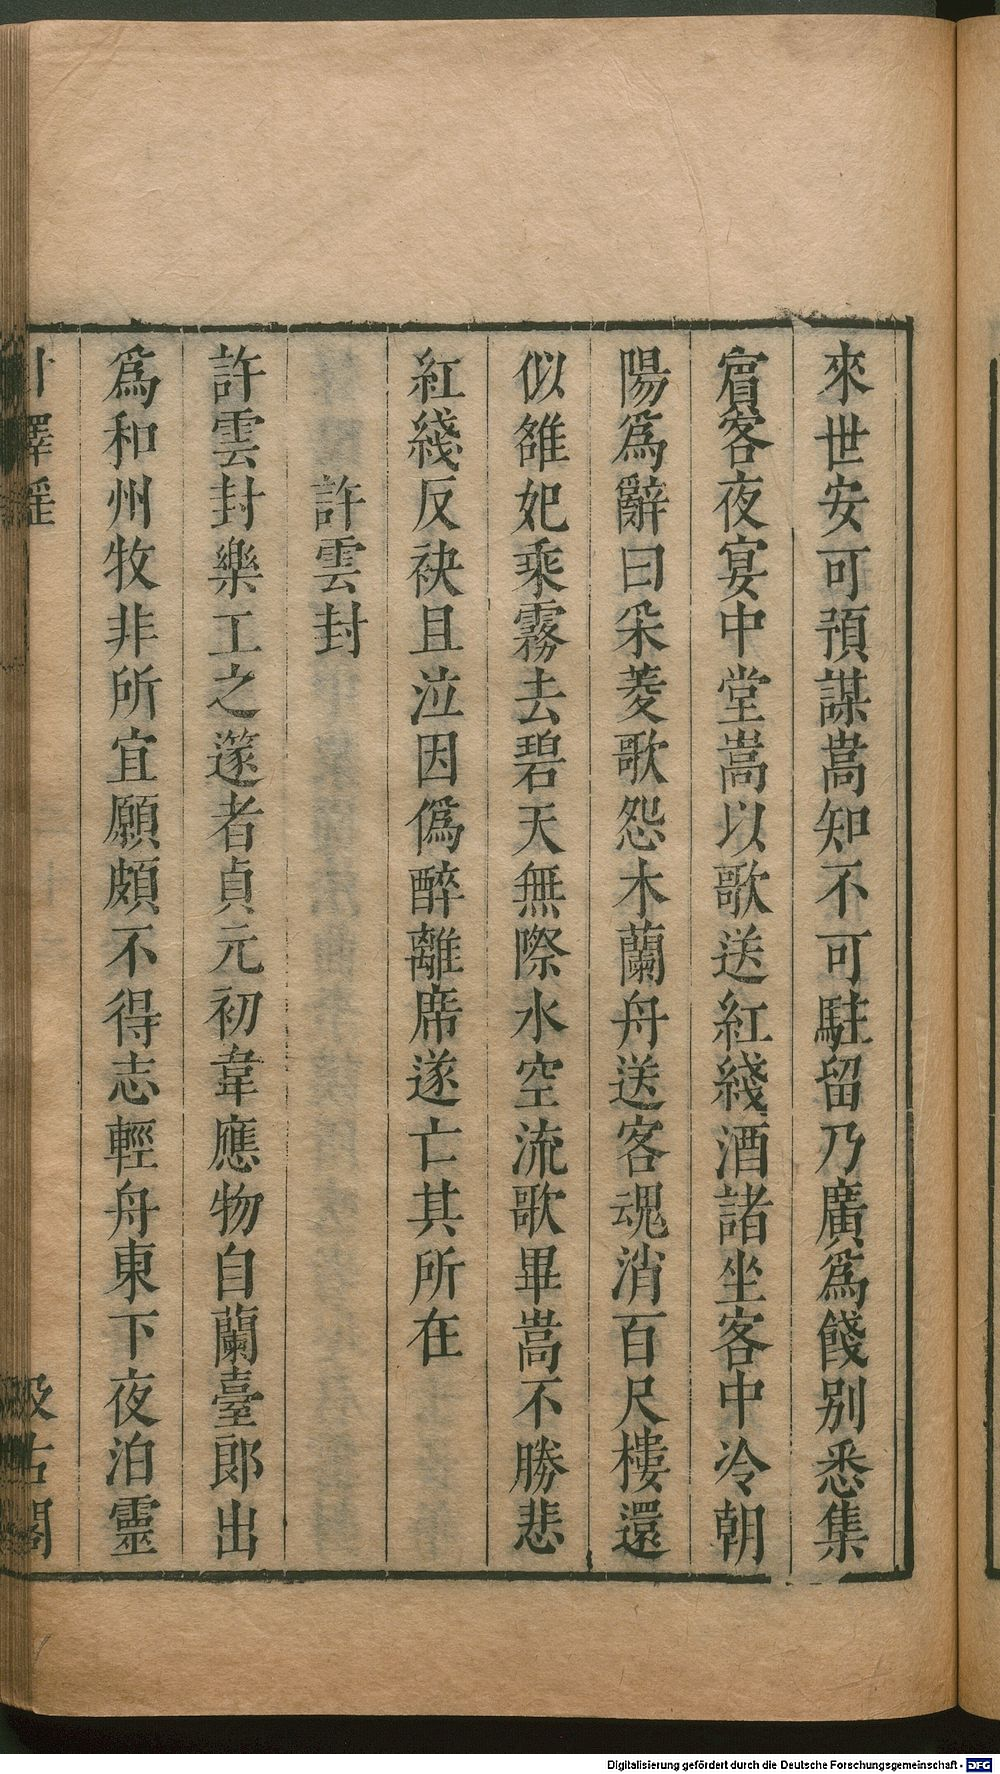 來世安可預謀嵩知不可駐留乃廣爲餞别悉集
賔客夜宴中堂嵩以歌送紅綫酒諸坐客中冷朝
陽爲辭曰采菱歌怨木蘭舟送客魂消百尺樓還
似雒妃乘霧去碧天無際水空流歌畢嵩不勝悲
紅綫反袂且泣因僞醉離席遂亡其所在
許雲封
許雲封樂工之篴者貞元初韋應物自蘭臺郎出
爲和州牧非所宜願頗不得志輕舟東下夜泊靈
汲古閣
Digitalisierung gefördert durch die Deutsche Forschungsgemeinschaft - DFG